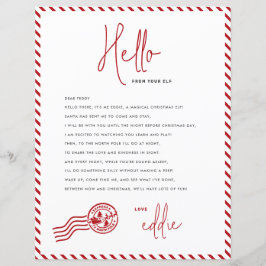 Hello
FROM YOUR ELF
DEAR TEDDY
HELLO THERE, IT'S ME EDDIE, A MAGICAL CHRISTMAS ELF!
SANTA HAS SENT ME TO COME AND STAY,
AND I WILL BE WITH YOU UNTIL THE NIGHT BEFORE CHRISTMAS DAY,
I AM EXCITED TO WATCHING YOU LEARN AND PLAY!
THEN, TO THE NORTH POLE I'LL GO AT NIGHT,
TO SHARE THE LOVE AND KINDNESS IN SIGHT.
AND EVERY NIGHT, WHILE YOU'RE SOUND ASLEEP,
I'LL DO SOMETHING SILLY WITHOUT MAKING A PEEP.
WAKE UP, COME FIND ME, AND SEE WHAT I'VE DONE,
BETWEEN NOW AND CHRISTMAS, WE'LL HAVE LOTS OF FUN!
LOVE
eddie